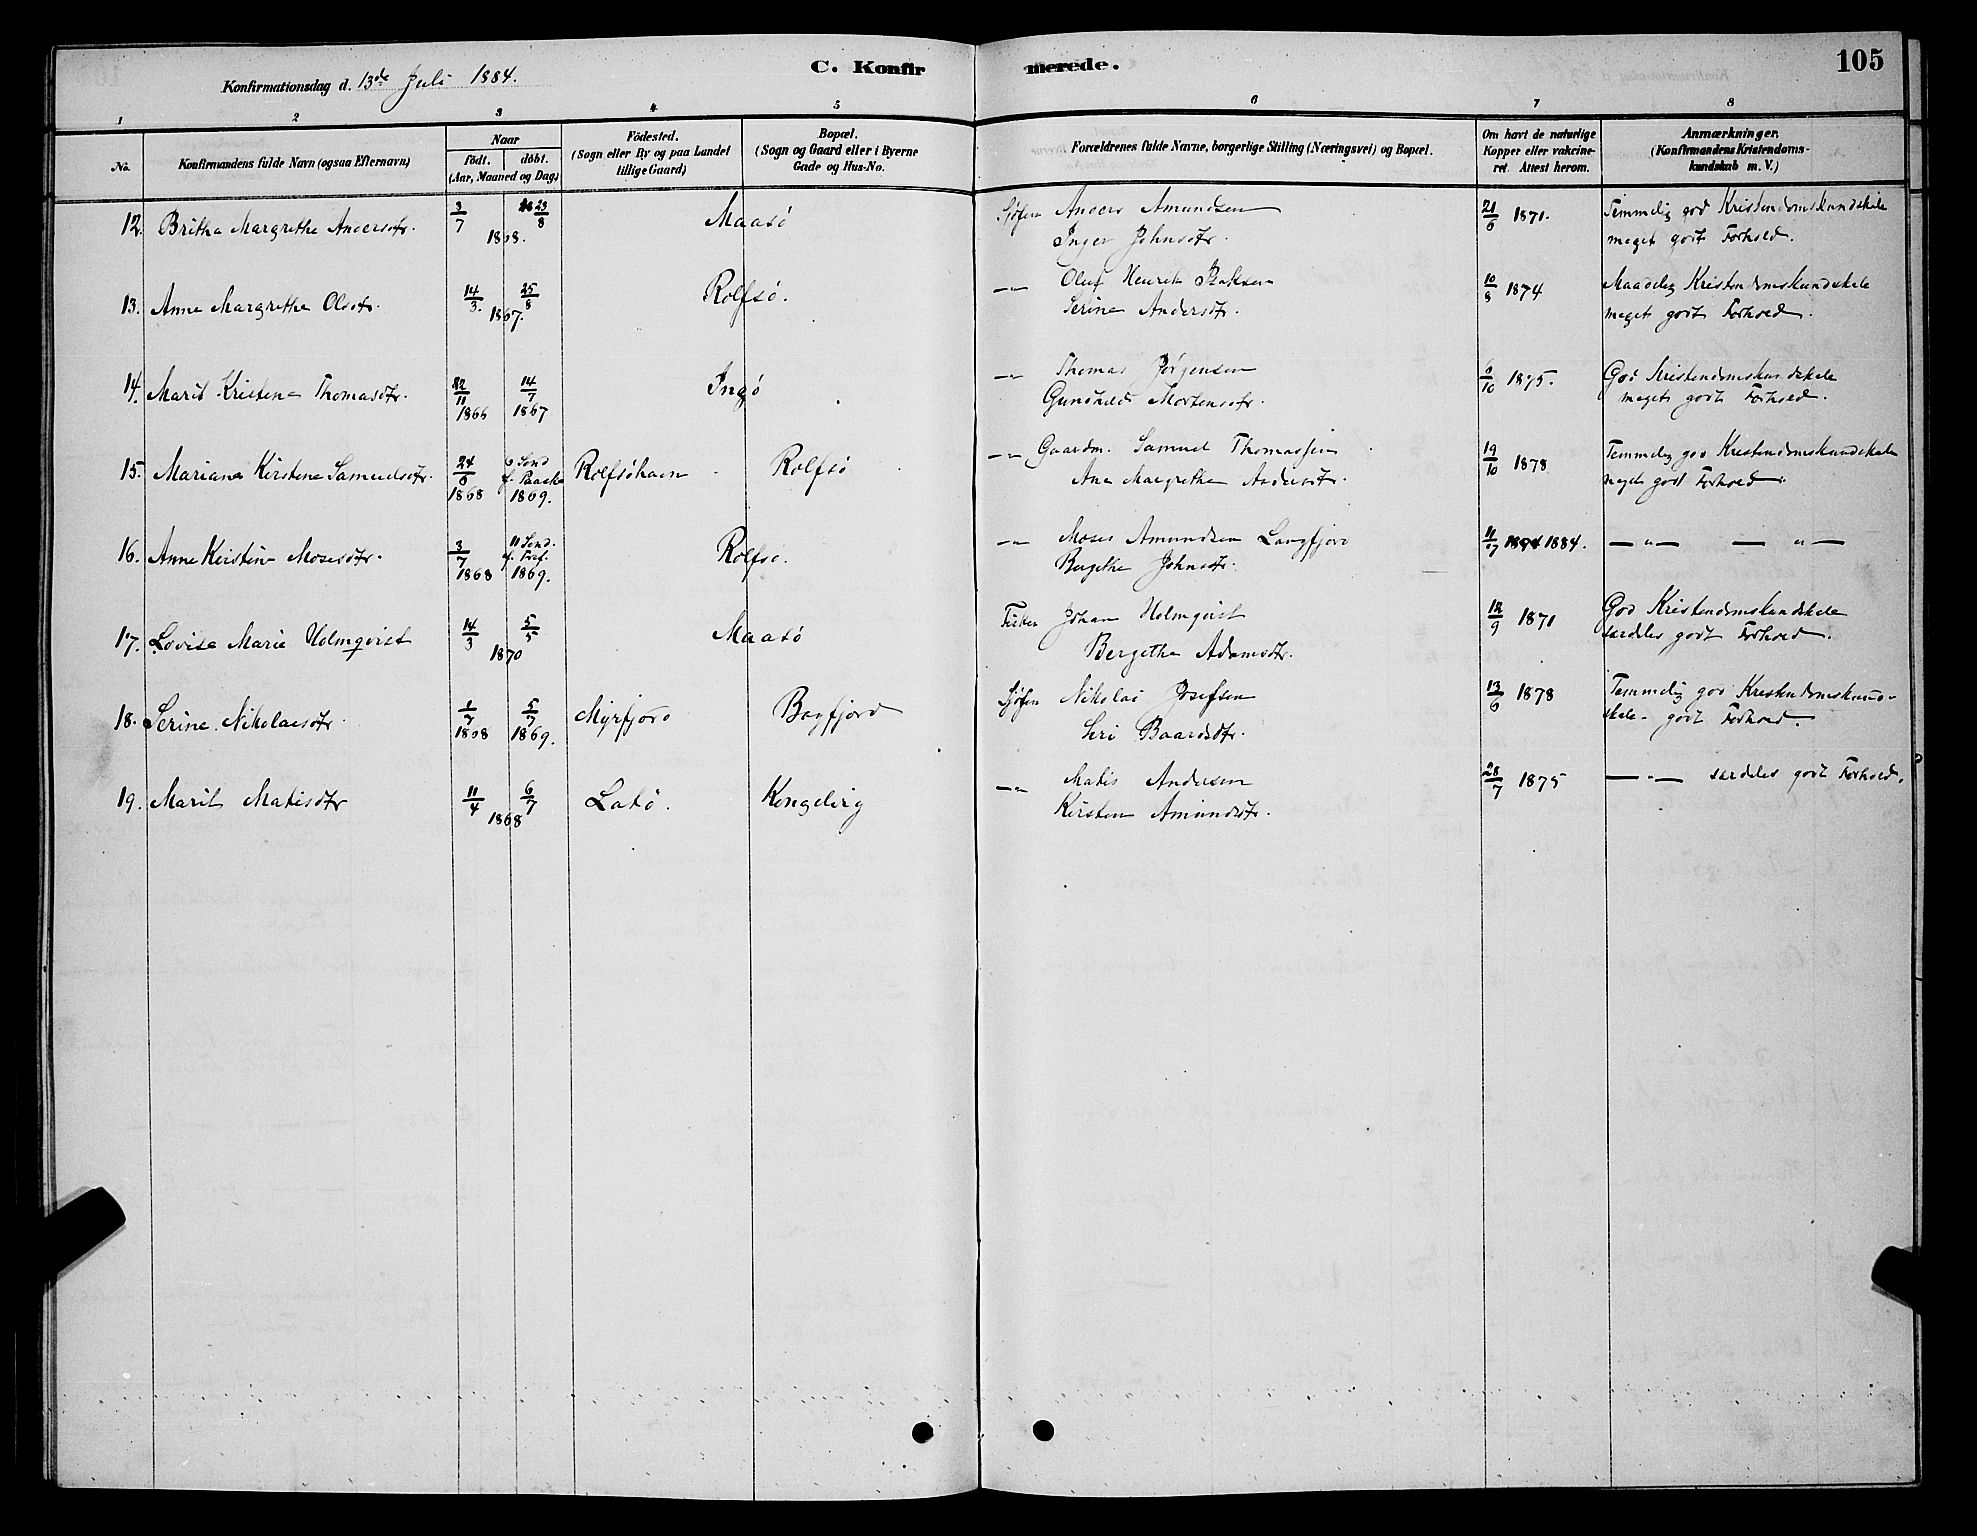 105
Konfirmationsdag d. 13de Juli 1884.
C. Konfirmerede.
1 2 3 4 5 6 7 8
No.
Konfirmandens fulde Navn (ogsaa Efternavn)
Naar
födt. döbt.
(Aar, Maaned og Dag)
Födested.
(Sogn eller By og paa Landet
tillige Gaard)
Bopæl.
(Sogn og Gaard eller i Byerne
Gade og Hus-No.
Forældrenes fulde Navne, borgerlige Stilling (Næringsvei) og Bopæl.
Om havt de naturlige
Kopper eller vakcine-
ret. Attest herom.
Anmærkninger.
(Konfirmandens Kristendoms-
kundskab m. V.)
12. Britha Margrethe Andersdtr. 3/7 23/8 1868. Maasö Sjöfin Anders Amundsen 21/6 1871. Temmelig god Kristendomskundskab
Inger Johnsdtr. meget godt Forhold.
13. Anne Margrethe Olsdtr. 14/3. 25/8 1867. Rolfsö. —"— Oluf Henrik 10/8 1874 Maadelig Kristendomskundskab
Serine Andersdtr. meget godt Forhold.
14. Marit Kristena Thomasdtr. 22/11 1866 14/7 1867 Ingö —"— Thomas Jörgensen 6/10 1875. God Kristendomskundskab
Gundhild Mortensdtr. meget godt Forhold.
15. Mariana Kirstine Samuelsdtr. 24/6 1868 6 Sönd f. Paaske 1869. Rolfsöhavn Rolfsö —"— Gaardm. Samuel Thomassen 19/10 1878 Temmelig god Kristendomskundskab
Ane Margrethe Andersdtr. meget godt Forhold.
16. Anne Kerstine Mosesdtr. 3/7 1868 11 Sönd. f. Tref. 1869. Rolfsö. —"— Moses Amundsen Langfjord 11/7 1884. —"— — "—
Bergethe Johnsdtr.
17. Lovise Marie Holmqvist 14/3 5/5 1870 Maasö Fisker Johan Holmqvist 12/9 1871 God Kristendomskundskab
Bergethe Adamsdtr. særdeles godt Forhold.
18. Serine Nikolaisdtr 1/7 1868 5/7 1869. Myrfjord Bagfjord Sjöfin Nikolai Josefsen 13/6 1878 Temmelig god Kristendomskund-
Siri Baardsdtr. skab - godt Forhold.
19. Marit Matisdtr 11/4 6/7 1868 Latö. —"— Matis Andersen 28/7 1875 —"— særdeles godt Forhold.
Kirsten Amundsdtr.